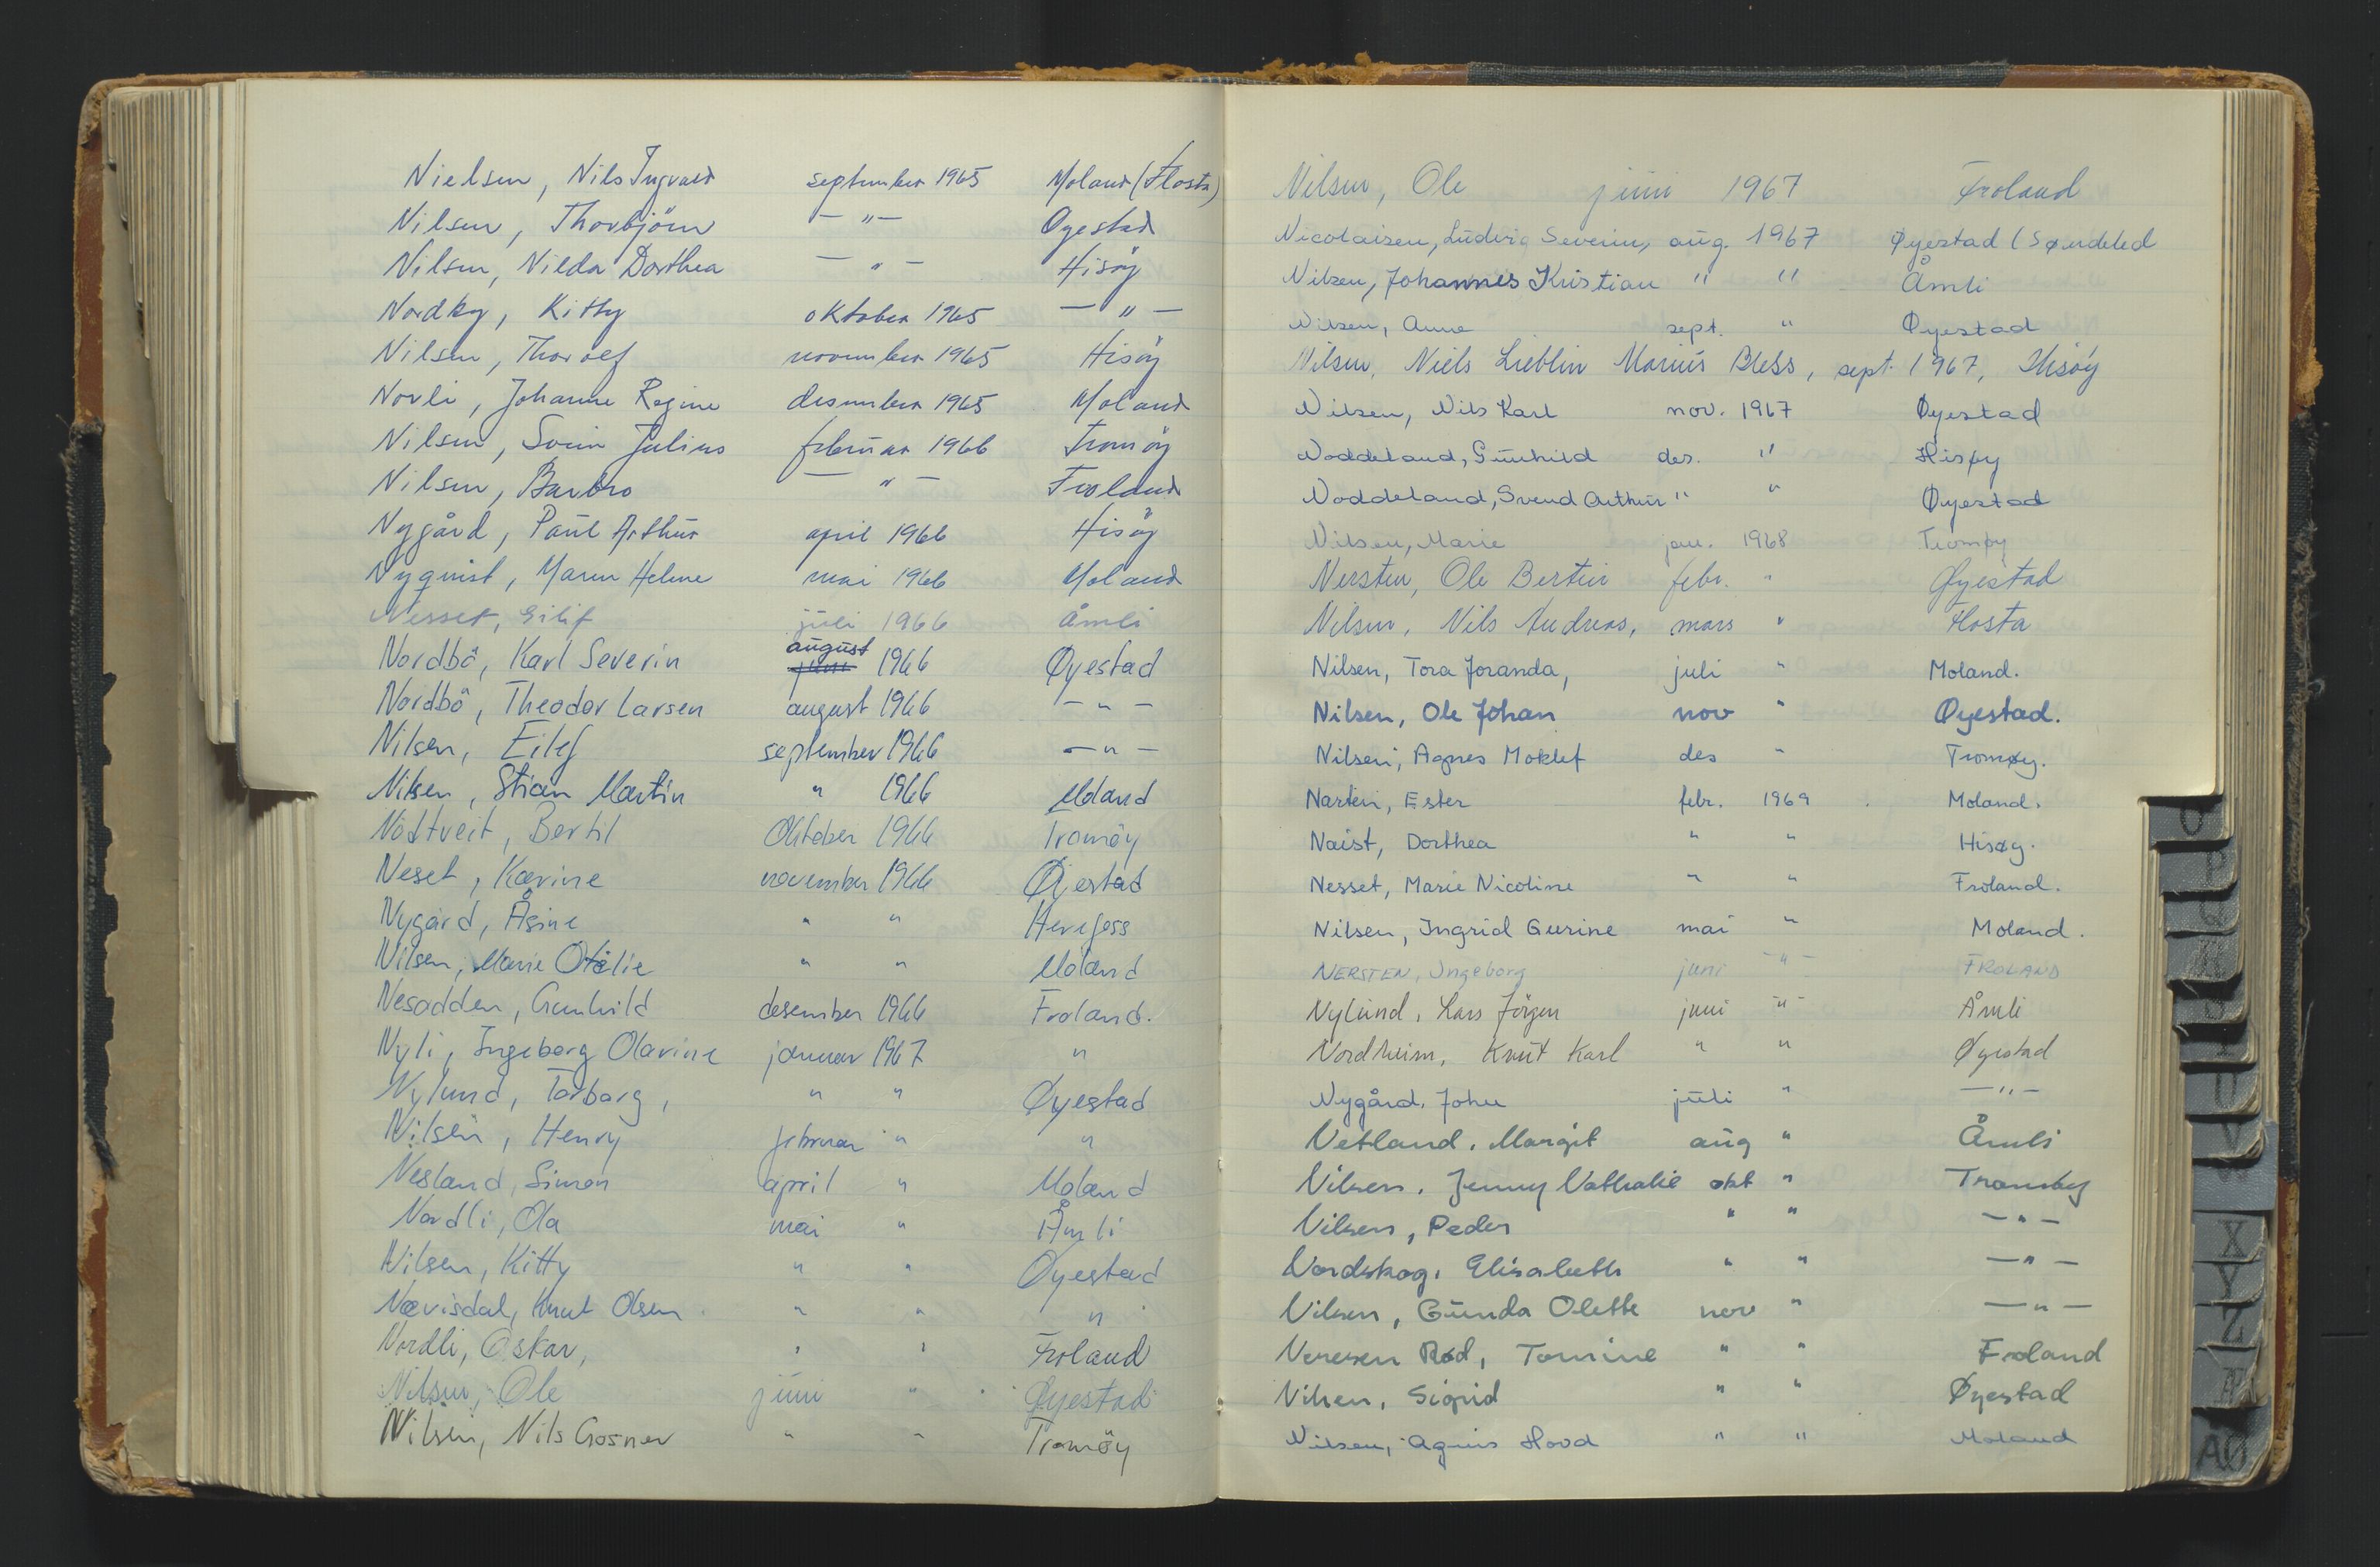 Nielsen, Nils Ingvald september 1965 Moland (Flosta)
Nilsen, Thorbjörn — " — Øyestad
Nilsen, Nilda Dorthea — " — Hisöy
Nordby, Kitty oktober 1965 — " —
Nilsen, Thorolf november 1965 Hisöy
Novli, Johanne Regine desember 1965 Moland
Nilsen, Svein Julius februar 1966 Tromöy
Nilsen, Barbro — " — Froland
Nygård, Paul Arthur april 1966 Hisöy
Nyquist, Maren Helene mai 1966 Moland
Nesset, Eilif juli 1966 Åmli
august
Nordbö, Karl Severin juni 1966 Øyestad
Nordbö, Theodor Larsen august 1966 — " —
Nilsen, Eilef september 1966 — " —
Nilsen, Stian Martin " 1966 Moland
Nödtveit, Bertil Oktober 1966 Tromöy
Neset, Karine november 1966 Øyestad
Nygård, Åsine " " Herefoss
Nilsen, Marie Otelie " " Moland
Nesodden, Gunhild desember 1966 Froland.
Nyli, Ingeborg Olavine januar 1967 "
Nylund, Torborg, " " Øyestad
Nilsen, Henry februar " "
Nesland, Simon april " Moland
Nordli, Ola mai " Åmli
Nilsen, Kitty " " Øyestad
Nævisdal, Knut Olsen " " "
Nordli, Oskar, " " Froland
Nilsen, Ole juni " Øyestad
Nilsen, Nils Gosner " " Tromöy
Nilsen, Ole juni 1967 Froland
Nicolaisen, Ludvig Severin, aug. 1967 Øyestad (Søndeled
Nilsen, Johannes Kristian " " Åmli
Nilsen, Anne sept. " Øyestad
Nilsen, Niels Lieblin Marius Bless, sept. 1967, Hisöy
Nilsen, Nils Karl nov. 1967 Øyestad
Noddeland, Gunhild des. " Hisøy
Noddeland, Svend Arthur " " Øyestad
Nilsen, Marie jan. 1968 Tromøy
Nersten, Ole Bertin febr. " Øyestad
Nilsen, Nils Andreas, mars " Flosta
Nilsen, Tora Joranda, juli " Moland.
Nilsen, Ole Johan nov " Øyestad.
Nilsen, Agnes Moklef des " Tromøy.
Narten, Ester febr. 1969 Moland.
Naist, Dorthea " " Hisøy.
Nesset, Marie Nicoline " " Froland.
Nilsen, Ingrid Gurine mai " Moland.
NERSTEN, Ingeborg juni — " — FROLAND
Nylund, Lars Jörgen juni — " — Åmli
Nordheim, Knut Karl " " Øyestad
Nygård, John juli " — " —
Netland, Margit aug " Åmli
Nilsen, Jenny Nathalie okt " Tromöy
Nilsen, Peder " " — " —
Nordskog, Elisabeth " " — " —
Nilsen, Gunda Olette nov " — " —
Neresen Rød, Tomine " " Froland
Nilsen, Sigrid " " Øyestad
Nilsen, Agnis Hovd " " Moland
O
P
Q
R
S
T
U
V
X
Y
Z
Æ
AØ